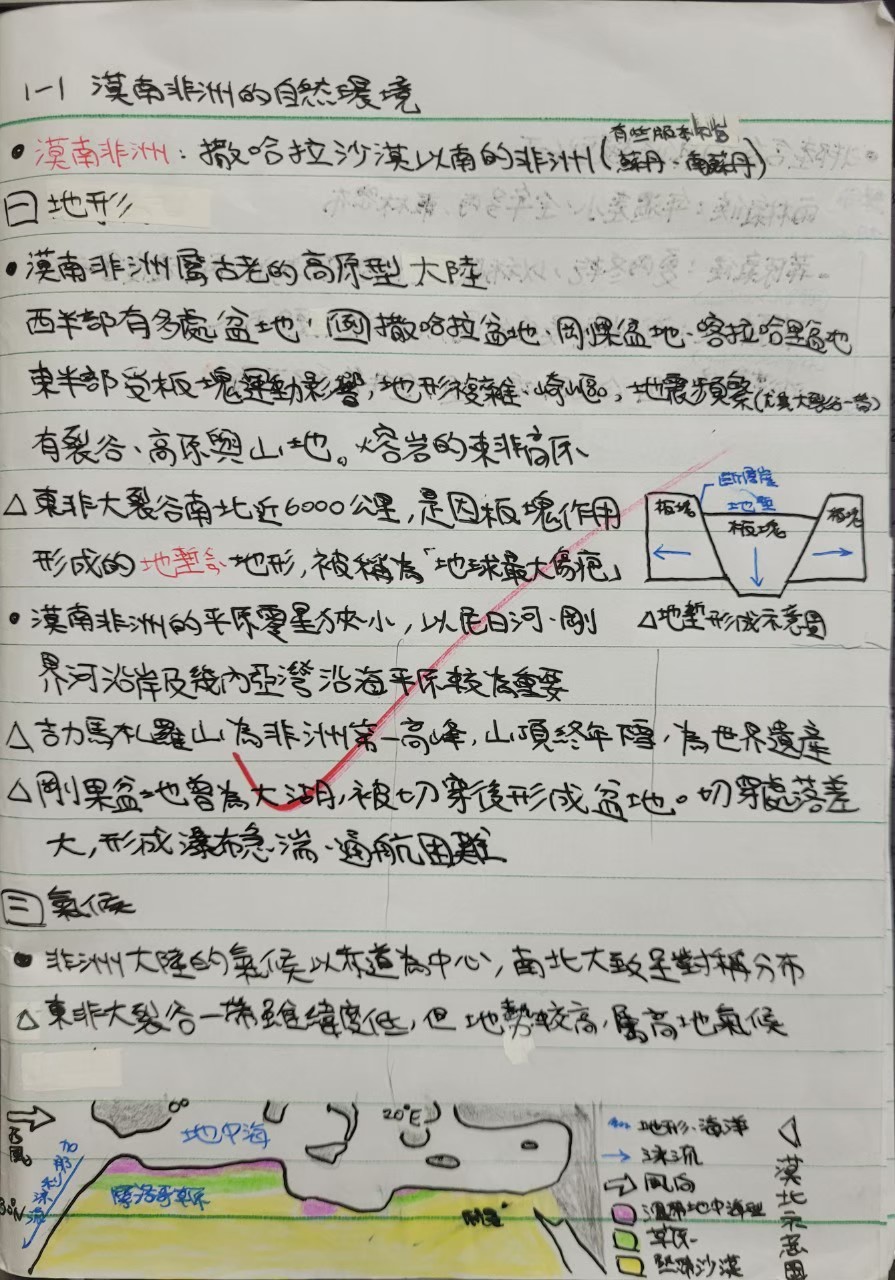 1-1 漠南非洲的自然環境
• 漠南非洲：撒哈拉沙漠以南的非洲(蘇丹、南蘇丹)
㊀地形
• 漠南非洲屬古老的高原型大陸
西半部有多處盆地，撒哈拉盆地、剛果盆地、喀拉哈里盆地
東半部受板塊運動影響，地形複雜、崎嶇。，地震頻繁(尤其大裂谷一帶)
有裂谷、高原與山地。熔岩的東非高原
△ 東非大裂谷南北近6000公里，是因板塊作用
形成的地塹 地形，被稱為「地球最大傷疤」
板塊
斷層崖
地塹
板塊
板塊
△地塹形成示意圖
• 漠南非洲的平原零星狹小，以尼日河、剛
界河沿岸及幾內亞灣沿海平原較為重要
△ 吉力馬札羅山為非洲第一高峰，山頂終年 ，為世界遺產
△ 剛果盆地曾為大湖，被切穿後形成盆地。切穿處落差
大，形成瀑布急湍、通航困難
三 氣候
• 非洲大陸的氣候以赤道為中心，南北大致呈對稱分布
△ 東非大裂谷一帶雖緯度低，但地勢較高，屬高地氣候
西風
0°
20°E
地中海
加那利涼流
30°N
開羅
地形、海洋
涼流
風向
溫帶地中海型
草原
熱帶沙漠
△漠北示意圖